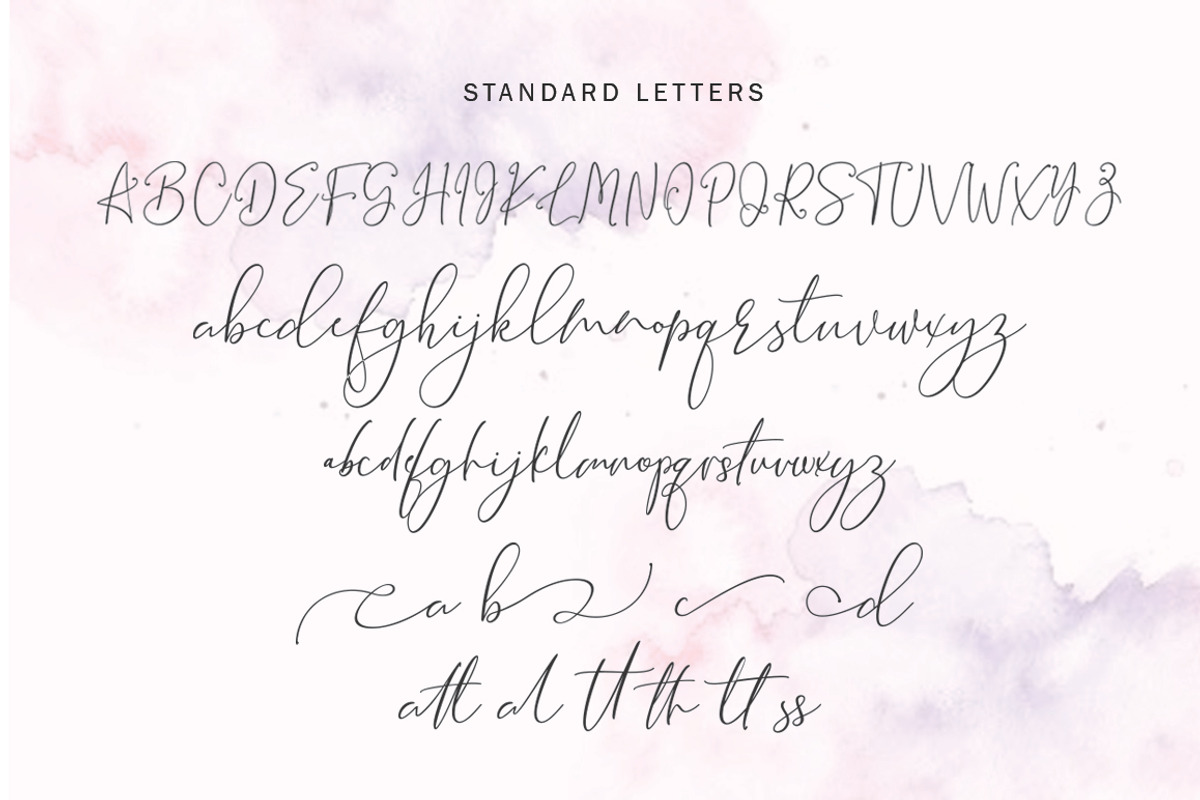 STANDARD LETTERS
ABCDEFGHIJKLMNOPQRSTUVWXYZ
abcdefghijklmnopqrstuvwxyz
abcdefghijklmnopqrstuvwxyz
a b c d
att al tt th tt ss